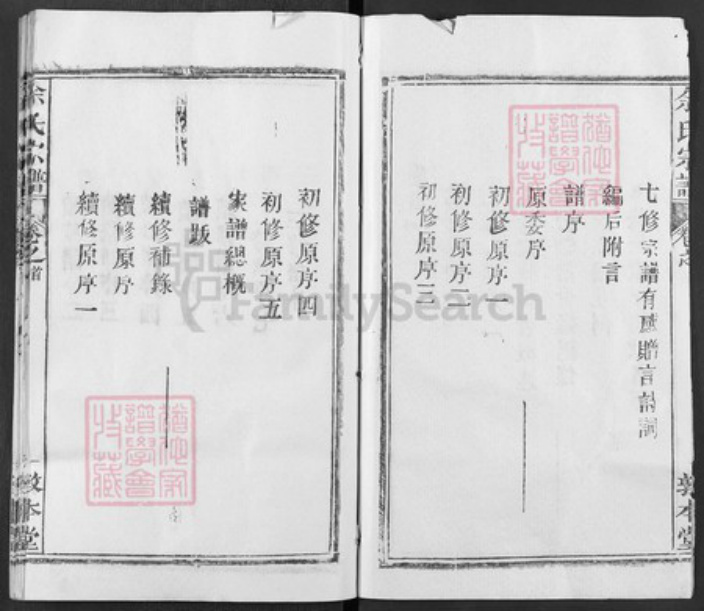 余氏宗譜
卷之
敦本堂
七修宗譜有感贈言詩詞
編后附言
譜序
原委序
初修原序一
初修原序二
初修原序三
初修原序四
初修原序五
家譜總概
譜跋
續修補錄
續修原序
續修原序一
余氏宗譜
卷之首
一
敦本堂
猶他家譜學會特藏
猶他家譜學會特藏
FamilySearch